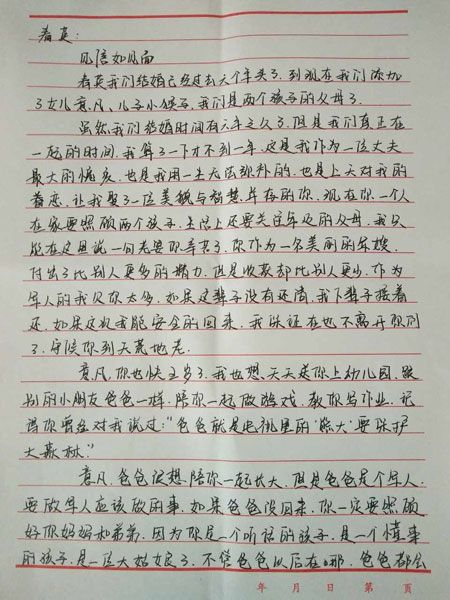 春英:
见信如见面
春英我们结婚已经过去六个年头了.到现在我们添加
了女儿意凡、儿子小 我们是两个孩子的父母了.
虽然我们结婚时间有六年之久了.但是我们真正在
一起的时间.我算了一下才不到一年.这是我作为一位丈夫
最大的愧疚.也是我用一生无法弥补的.也是上天对我的
眷恋.让我娶了一位美貌与智慧并存的你.现在你一个人
在家要照顾两个孩子.生活上还要关注年迈的父母.我只
能在这里说一句老婆你辛苦了.你作为一名美丽的军嫂.
付出了比别人更多的精力.但是收获却比别人更少.作为
军人的我欠你太多.如果这辈子没有还清.我下辈子接着
还.如果这次我能安全的回来.我保证在也不离开你们
了.守候你到天荒地老.
意凡.你也快五岁了.我也想.天天送你上幼儿园.跟
别的小朋友爸爸一样.陪你一起做游戏.教你写作业.记
得你曾经对我说过:"爸爸就是电视里的"熊大"要保护
大森林."
意凡.爸爸很想陪你一起长大.但是爸爸是个军人.
要做军人应该做的事.如果爸爸没回来.你一定要照顾
好你妈妈和弟弟.因为你是一个听话的孩子.是一个懂事
的孩子.是一位大姑娘了.不管爸爸以后在哪.爸爸都会
年 月 日 第 页